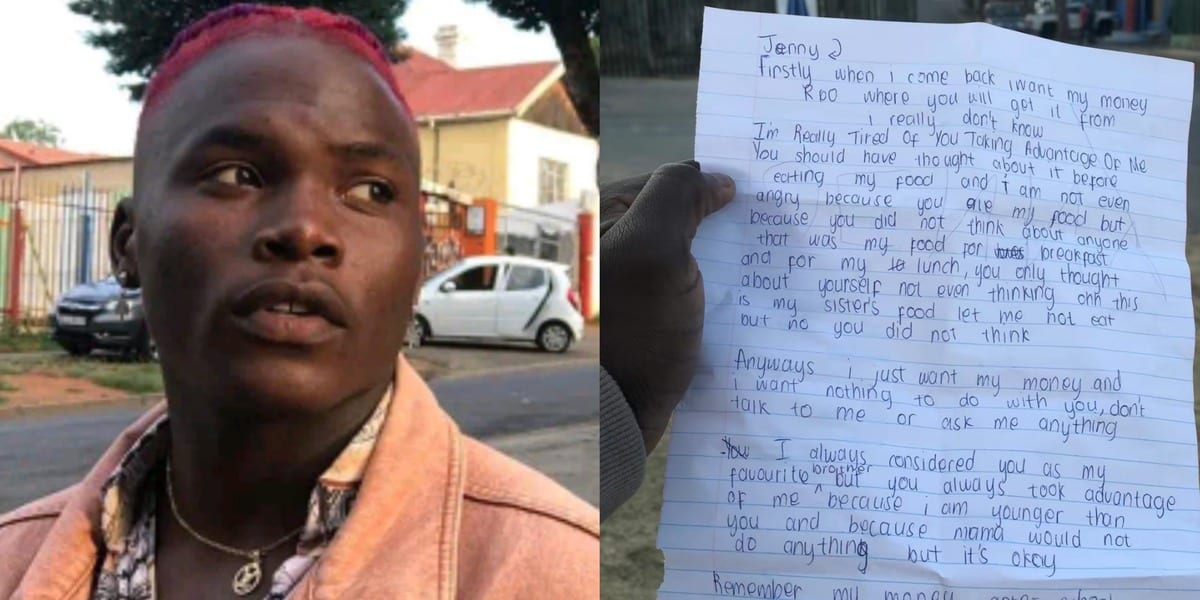 Jenny
Firstly when i come back i want my money
R60 where you will get it from
i really don't know
I'm Really Tired Of You Taking Advantage Of Me
You should have thought about it before
eating my food and i am not even
angry because you ate my food but
because you did not think about anyone
that was my food for breakfast
and for my lunch, you only thought
about yourself not even thinking ohh this
is my sister's food let me not eat
but no you did not think
Anyways i just want my money and
i want nothing to do with you, don't
talk to me or ask me anything
You I always considered you as my
favourite brother but you always took advantage
of me because i am younger than
you and because mama would not
do anything but it's okay
Remember my money